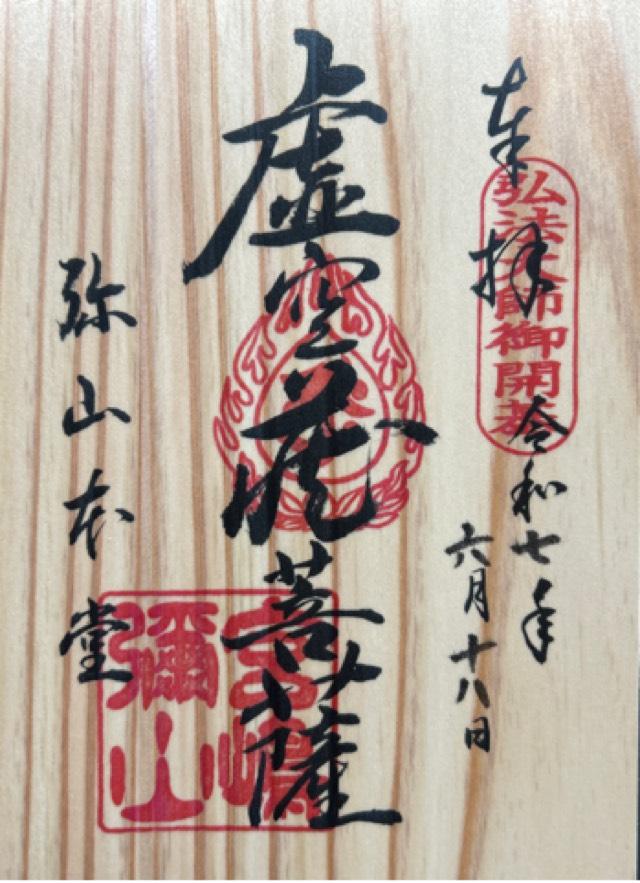 奉拝
弘法大師御開基
令和七年
六月十八日
虚空蔵菩薩
弥山本堂
宮嶋
彌山